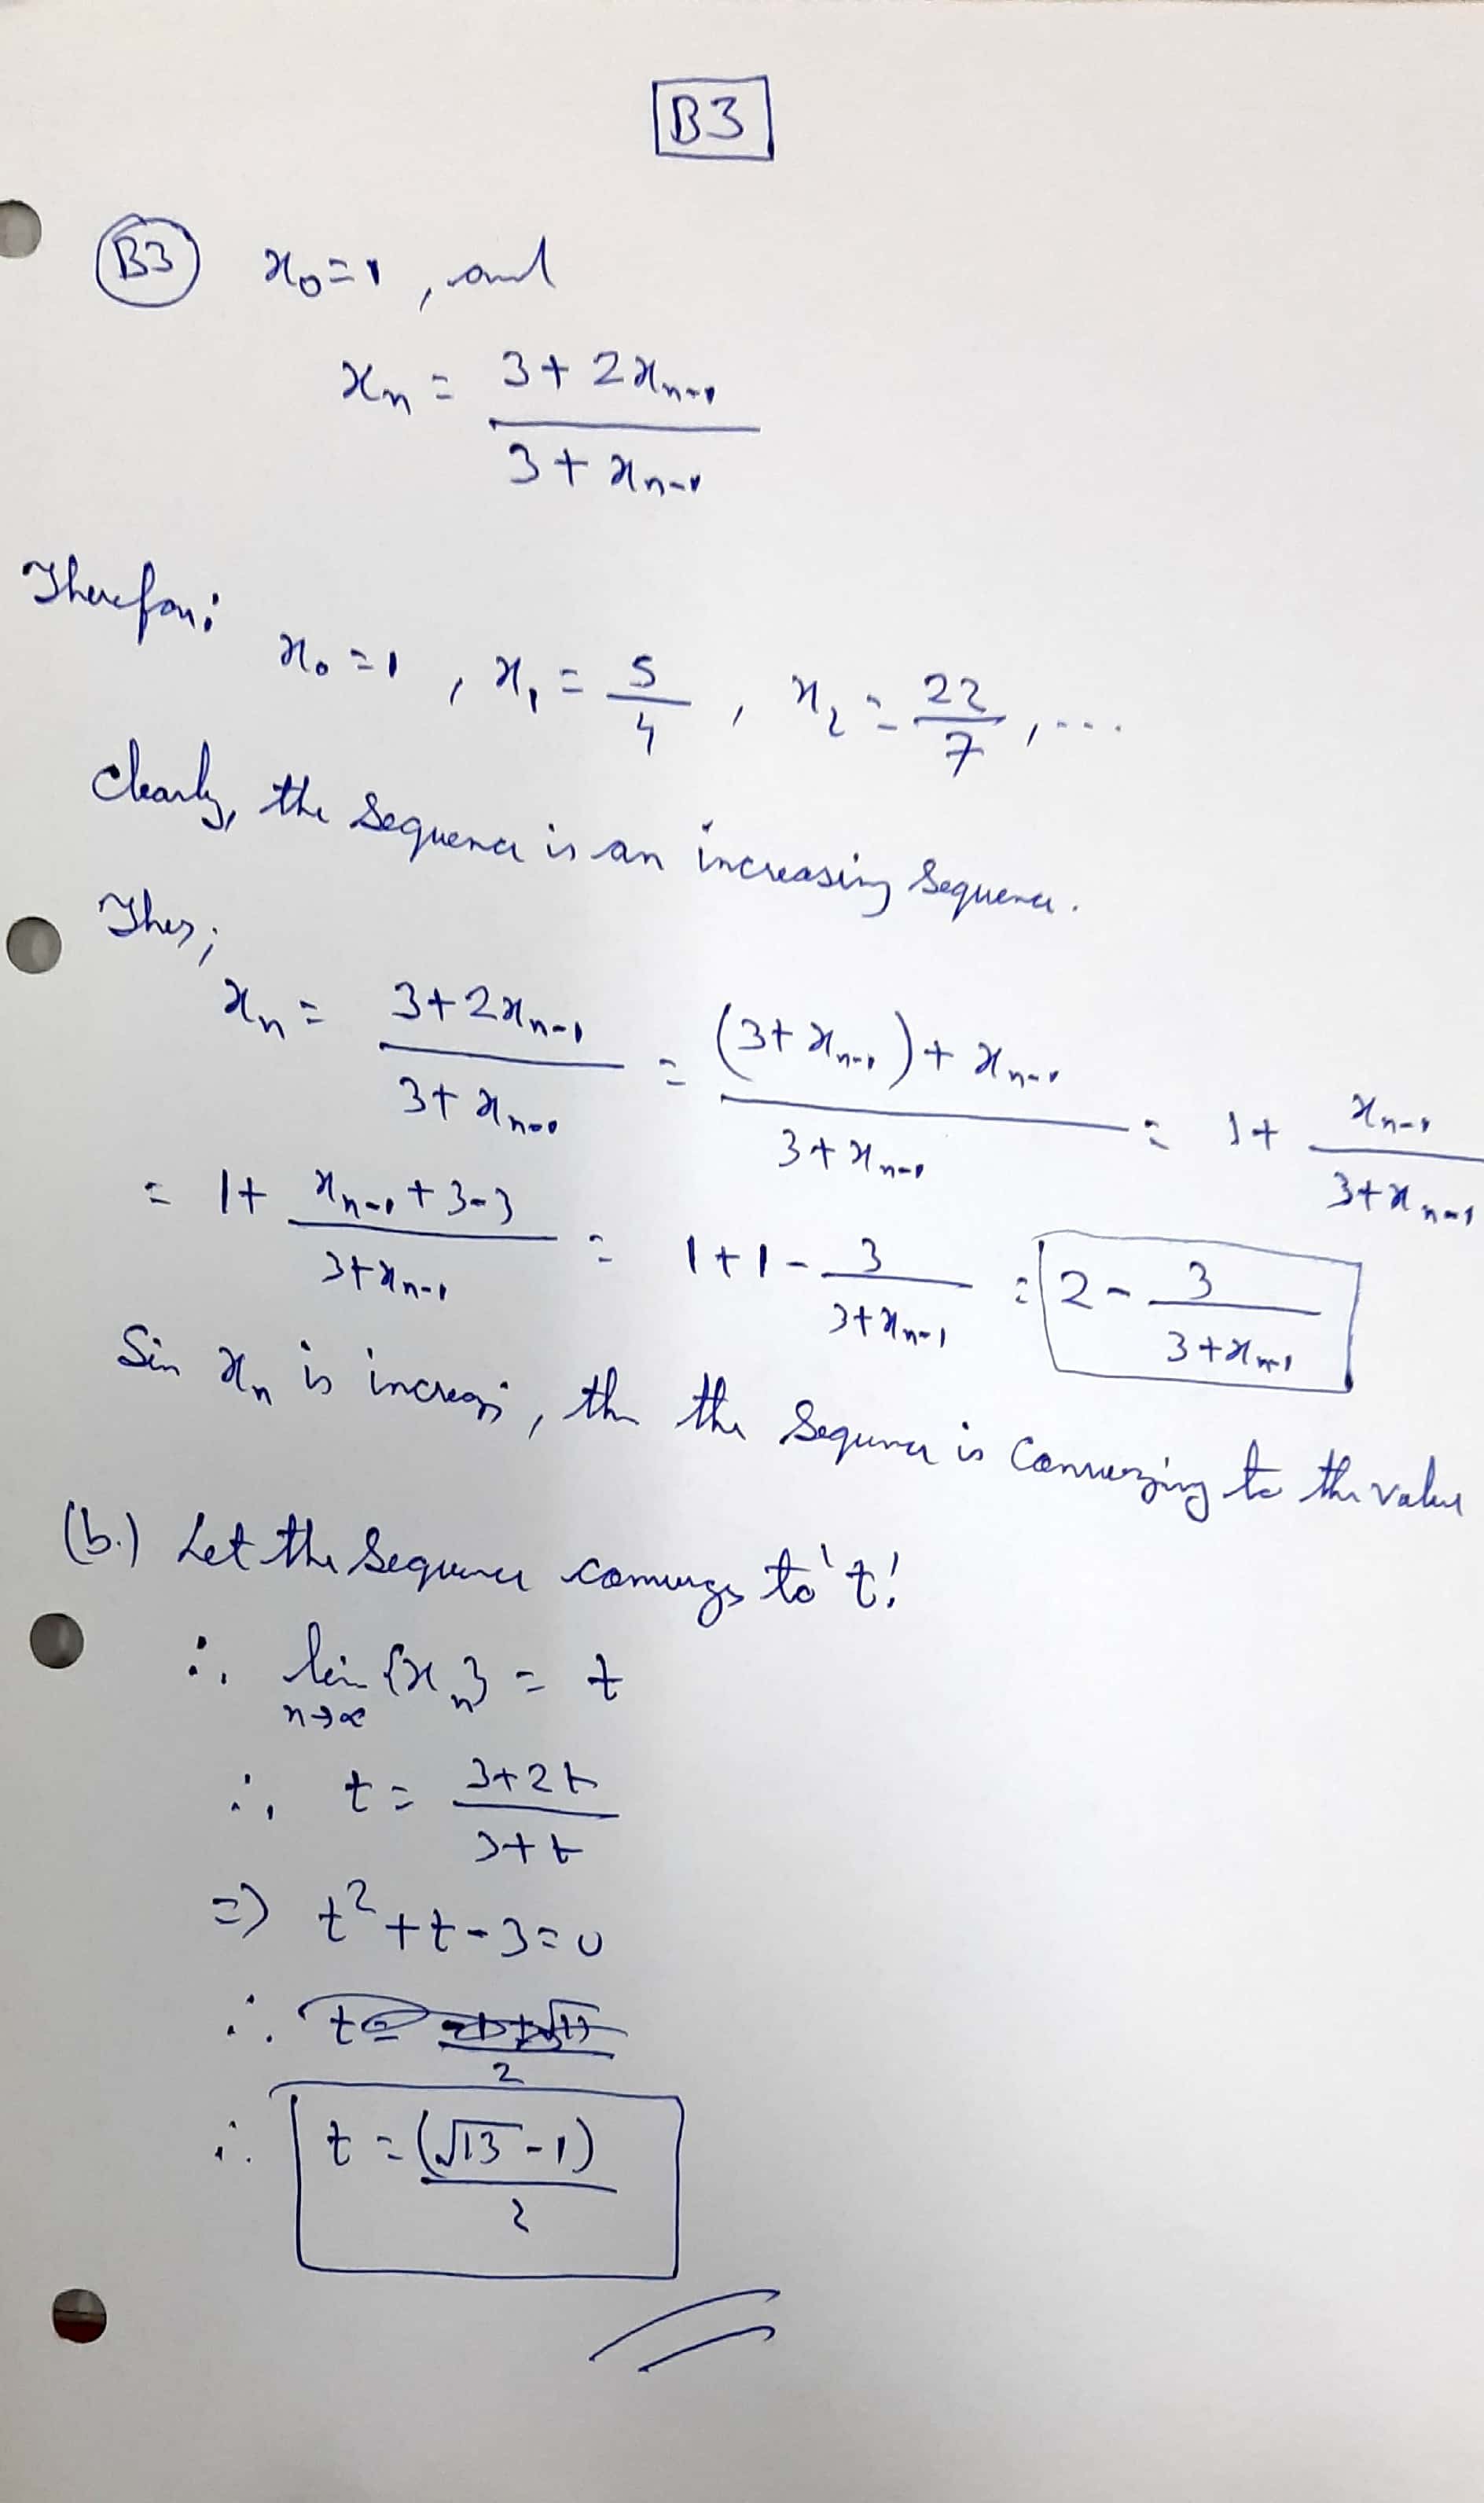 B3
B3 x₀=1, and
xₙ = (3+2xₙ₋₁)/(3+xₙ₋₁)
Therefore:
x₀=1, x₁=5/4, x₂=22/7, ...
Clearly, the sequence is an increasing sequence.
Thus;
xₙ = (3+2xₙ₋₁)/(3+xₙ₋₁) = ((3+xₙ₋₁)+xₙ₋₁)/(3+xₙ₋₁) = 1+ xₙ₋₁/(3+xₙ₋₁)
= 1+ (xₙ₋₁+3-3)/(3+xₙ₋₁) = 1+1- 3/(3+xₙ₋₁) = 2- 3/(3+xₙ₋₁)
Sin xₙ is increasi, the the sequence is converging to the value
(b.) Let the sequence converges to 't'.
∴ lim n→∞ {xₙ} = t
∴, t = (3+2t)/(3+t)
=) t²+t-3=0
∴.
∴ t = (√13-1)/2